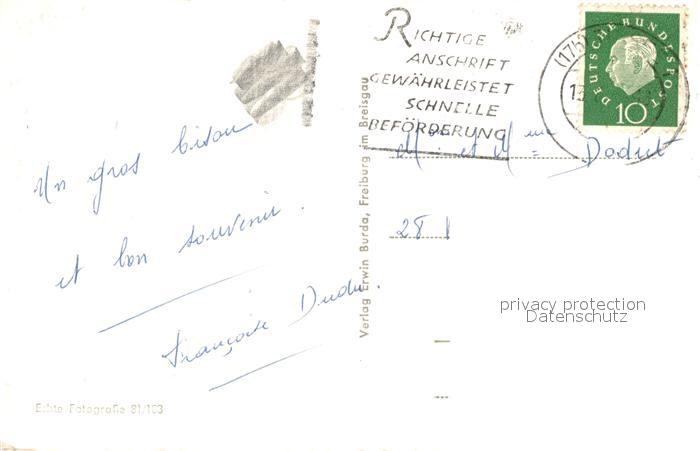 Un gros bison
et bon souvenir.
Françoise
Echte Fotografie 81/103
Verlag Erwin Burda, Freiburg im Breisgau
RICHTIGE
ANSCHRIFT
GEWÄHRLEISTET
SCHNELLE
BEFÖRDERUNG
(17b)
13.
DEUTSCHE BUNDESPOST
10
Mr et Mme
28
privacy protection
Datenschutz